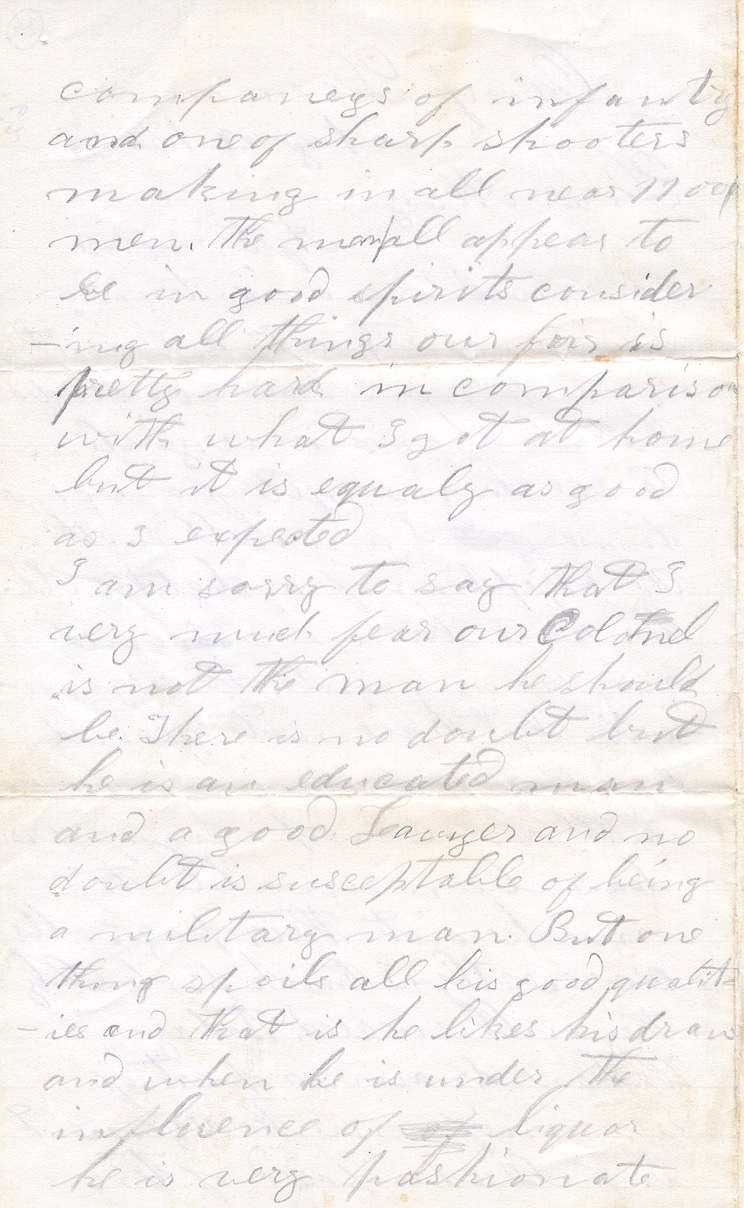 companeys of infantry
and one of sharp shooters
making in all near 1100
men. The men all appear to
be in good spirits consider
-ing all things our fair is
pretty hard in comparison
with what I got at home
but it is equaly as good
as I expected
I am sorry to say that I
very much fear our Colonel
is not the man he should
be. There is no doubt but
he is an educated man
and a good Lawyer and no
doubt is susceptable of being
a military man. But one
thing spoils all his good qualit
-ies and that is he likes his dram
and when he is under the
influence of liquor
he is very pashionate